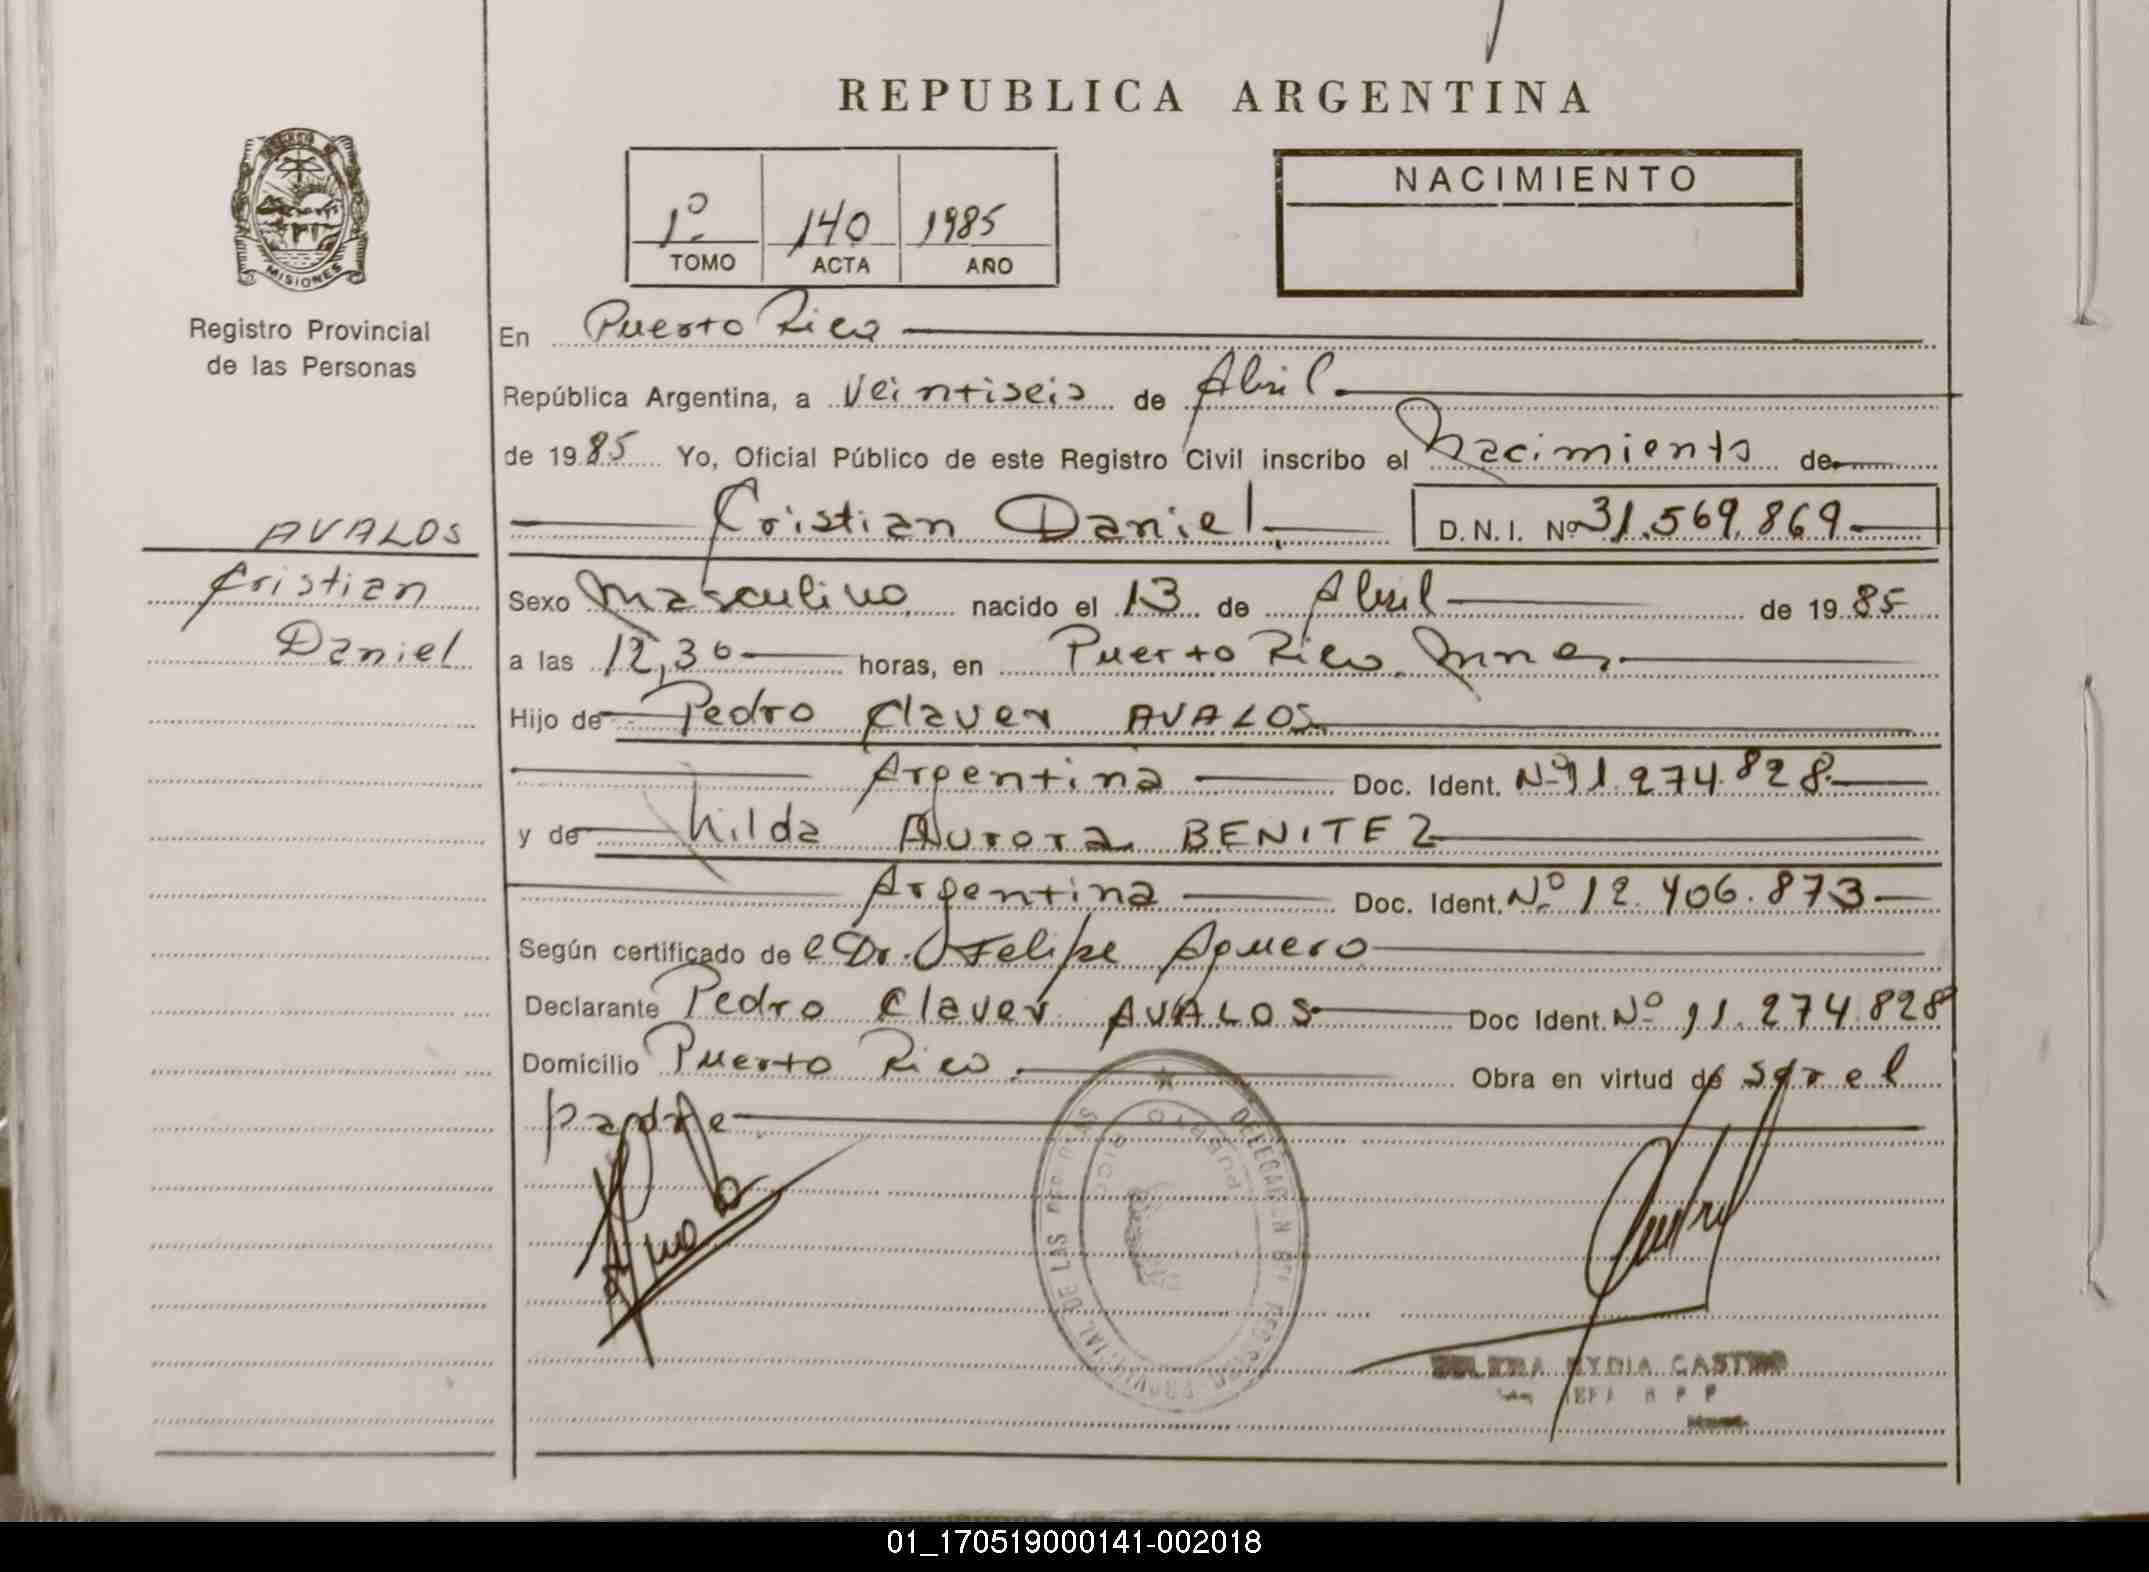 REPUBLICA ARGENTINA
MISIONES
Registro Provincial
de las Personas
1º 140 1985
TOMO ACTA AÑO
NACIMIENTO
En Puerto Rico
República Argentina, a Veintiseis de Abril
de 1985 Yo, Oficial Público de este Registro Civil inscribo el Nacimiento de
AVALOS
Cristian
Daniel
Cristian Daniel. D.N.I. Nº 31.569.869
Sexo Masculino nacido el 13 de Abril de 1985
a las 12,30 horas, en Puerto Rico. Mnes.
Hijo de Pedro Claver AVALOS
Argentina Doc. Ident. Nº 11.274.828
y de Hilda Aurora BENITEZ
Argentina Doc. Ident. Nº 12.406.873
Según certificado de el Dr. Felipe Aguero
Declarante Pedro Claver AVALOS Doc Ident. Nº 11.274.828
Domicilio Puerto Rico. Obra en virtud de ser el
padre
DELEGACION DEL REGISTRO PROVINCIAL DE LAS PERSONAS
PUERTO RICO
NYDIA CASTRO
01_170519000141-002018